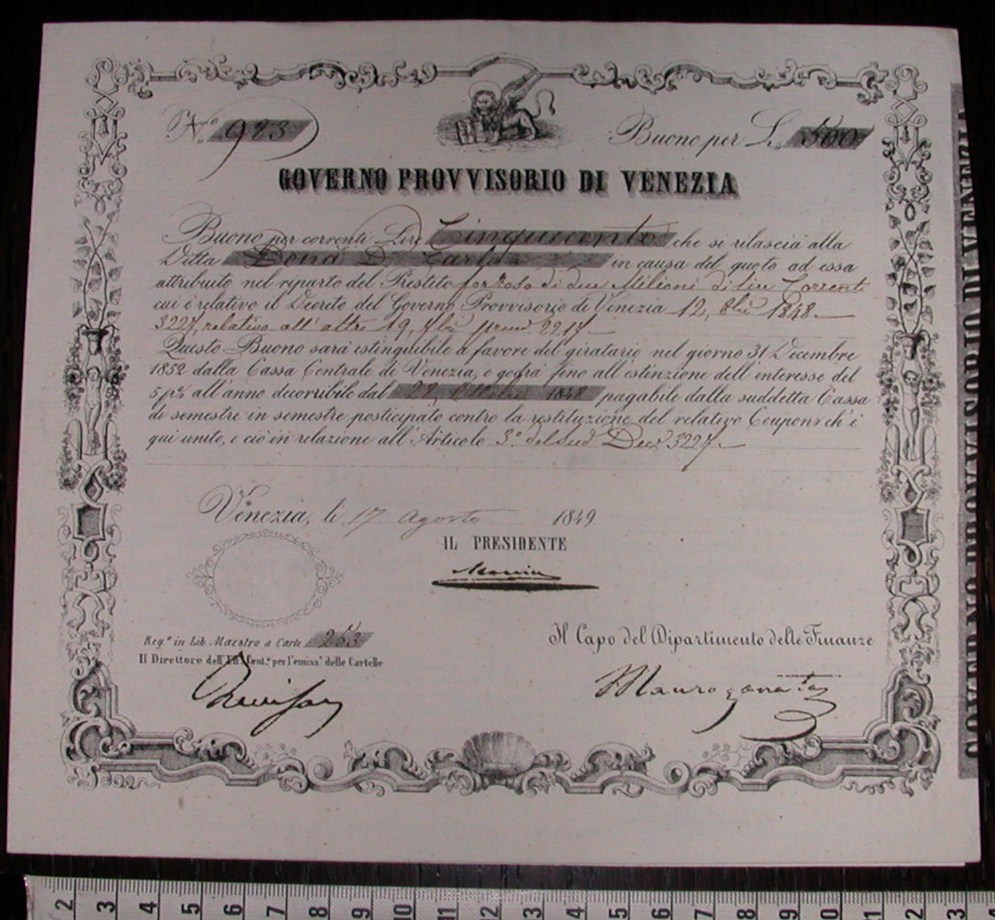 N.º 923
Buono per L. 500
GOVERNO PROVVISORIO DI VENEZIA
Buono per correnti Lire Cinquecento che si rilascia alla
Ditta Donà Dr. Carlo in causa del quoto ad essa
attribuito nel riparto del Prestito forzoso di due Milioni di Lire Correnti
cui è relativo il Decreto del Governo Provvisorio di Venezia 12, 8bre 1848
3227, relativo all' altro 19, 7bre 2217
Questo Buono sarà estinguibile a favore del giratario nel giorno 31 Decembre
1852 dalla Cassa Centrale di Venezia, e godrà fino all'estinzione dell'interesse del
5 p% all'anno decorribile dal 22 1848 pagabile dalla suddetta Cassa
di semestre in semestre posticipato contro la restituzione del relativo Coupon ch'è
qui unito, e ciò in relazione all'Articolo 3º del sud. Decr. 3227
Venezia, li 17 agosto 1849
IL PRESIDENTE
Manin
Reg.º in Lib. Maestro a Carte 253
Il Direttore dell' per l'emiss.e delle Cartelle
Il Capo del Dipartimento delle Finanze
Maurogonato
2 3 4 5 6 7 8 9 10 1 2 3 4 5 6 7 8 9 20 1 2 3